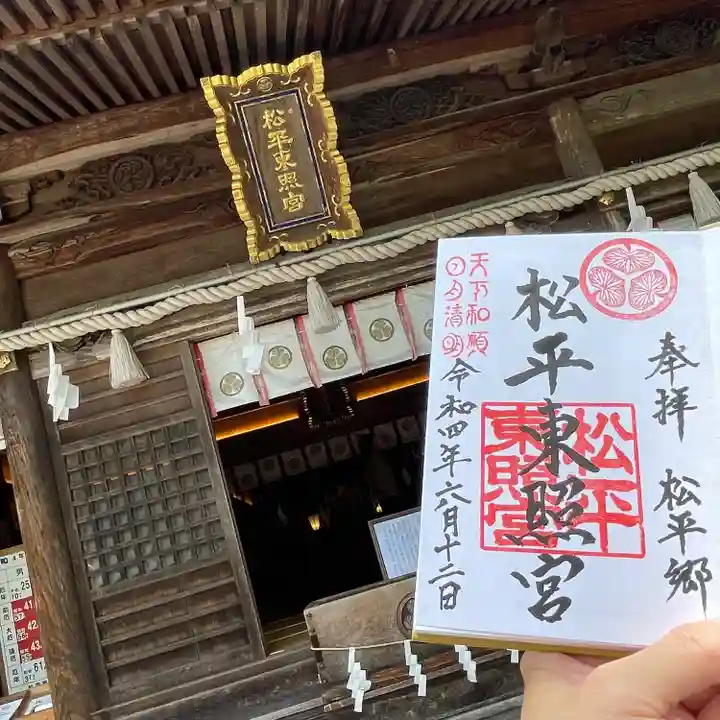 松平東照宮
奉拝 松平郷
松平東照宮
松平
東照宮
天下和順
日月清明
令和四年六月十二日
男